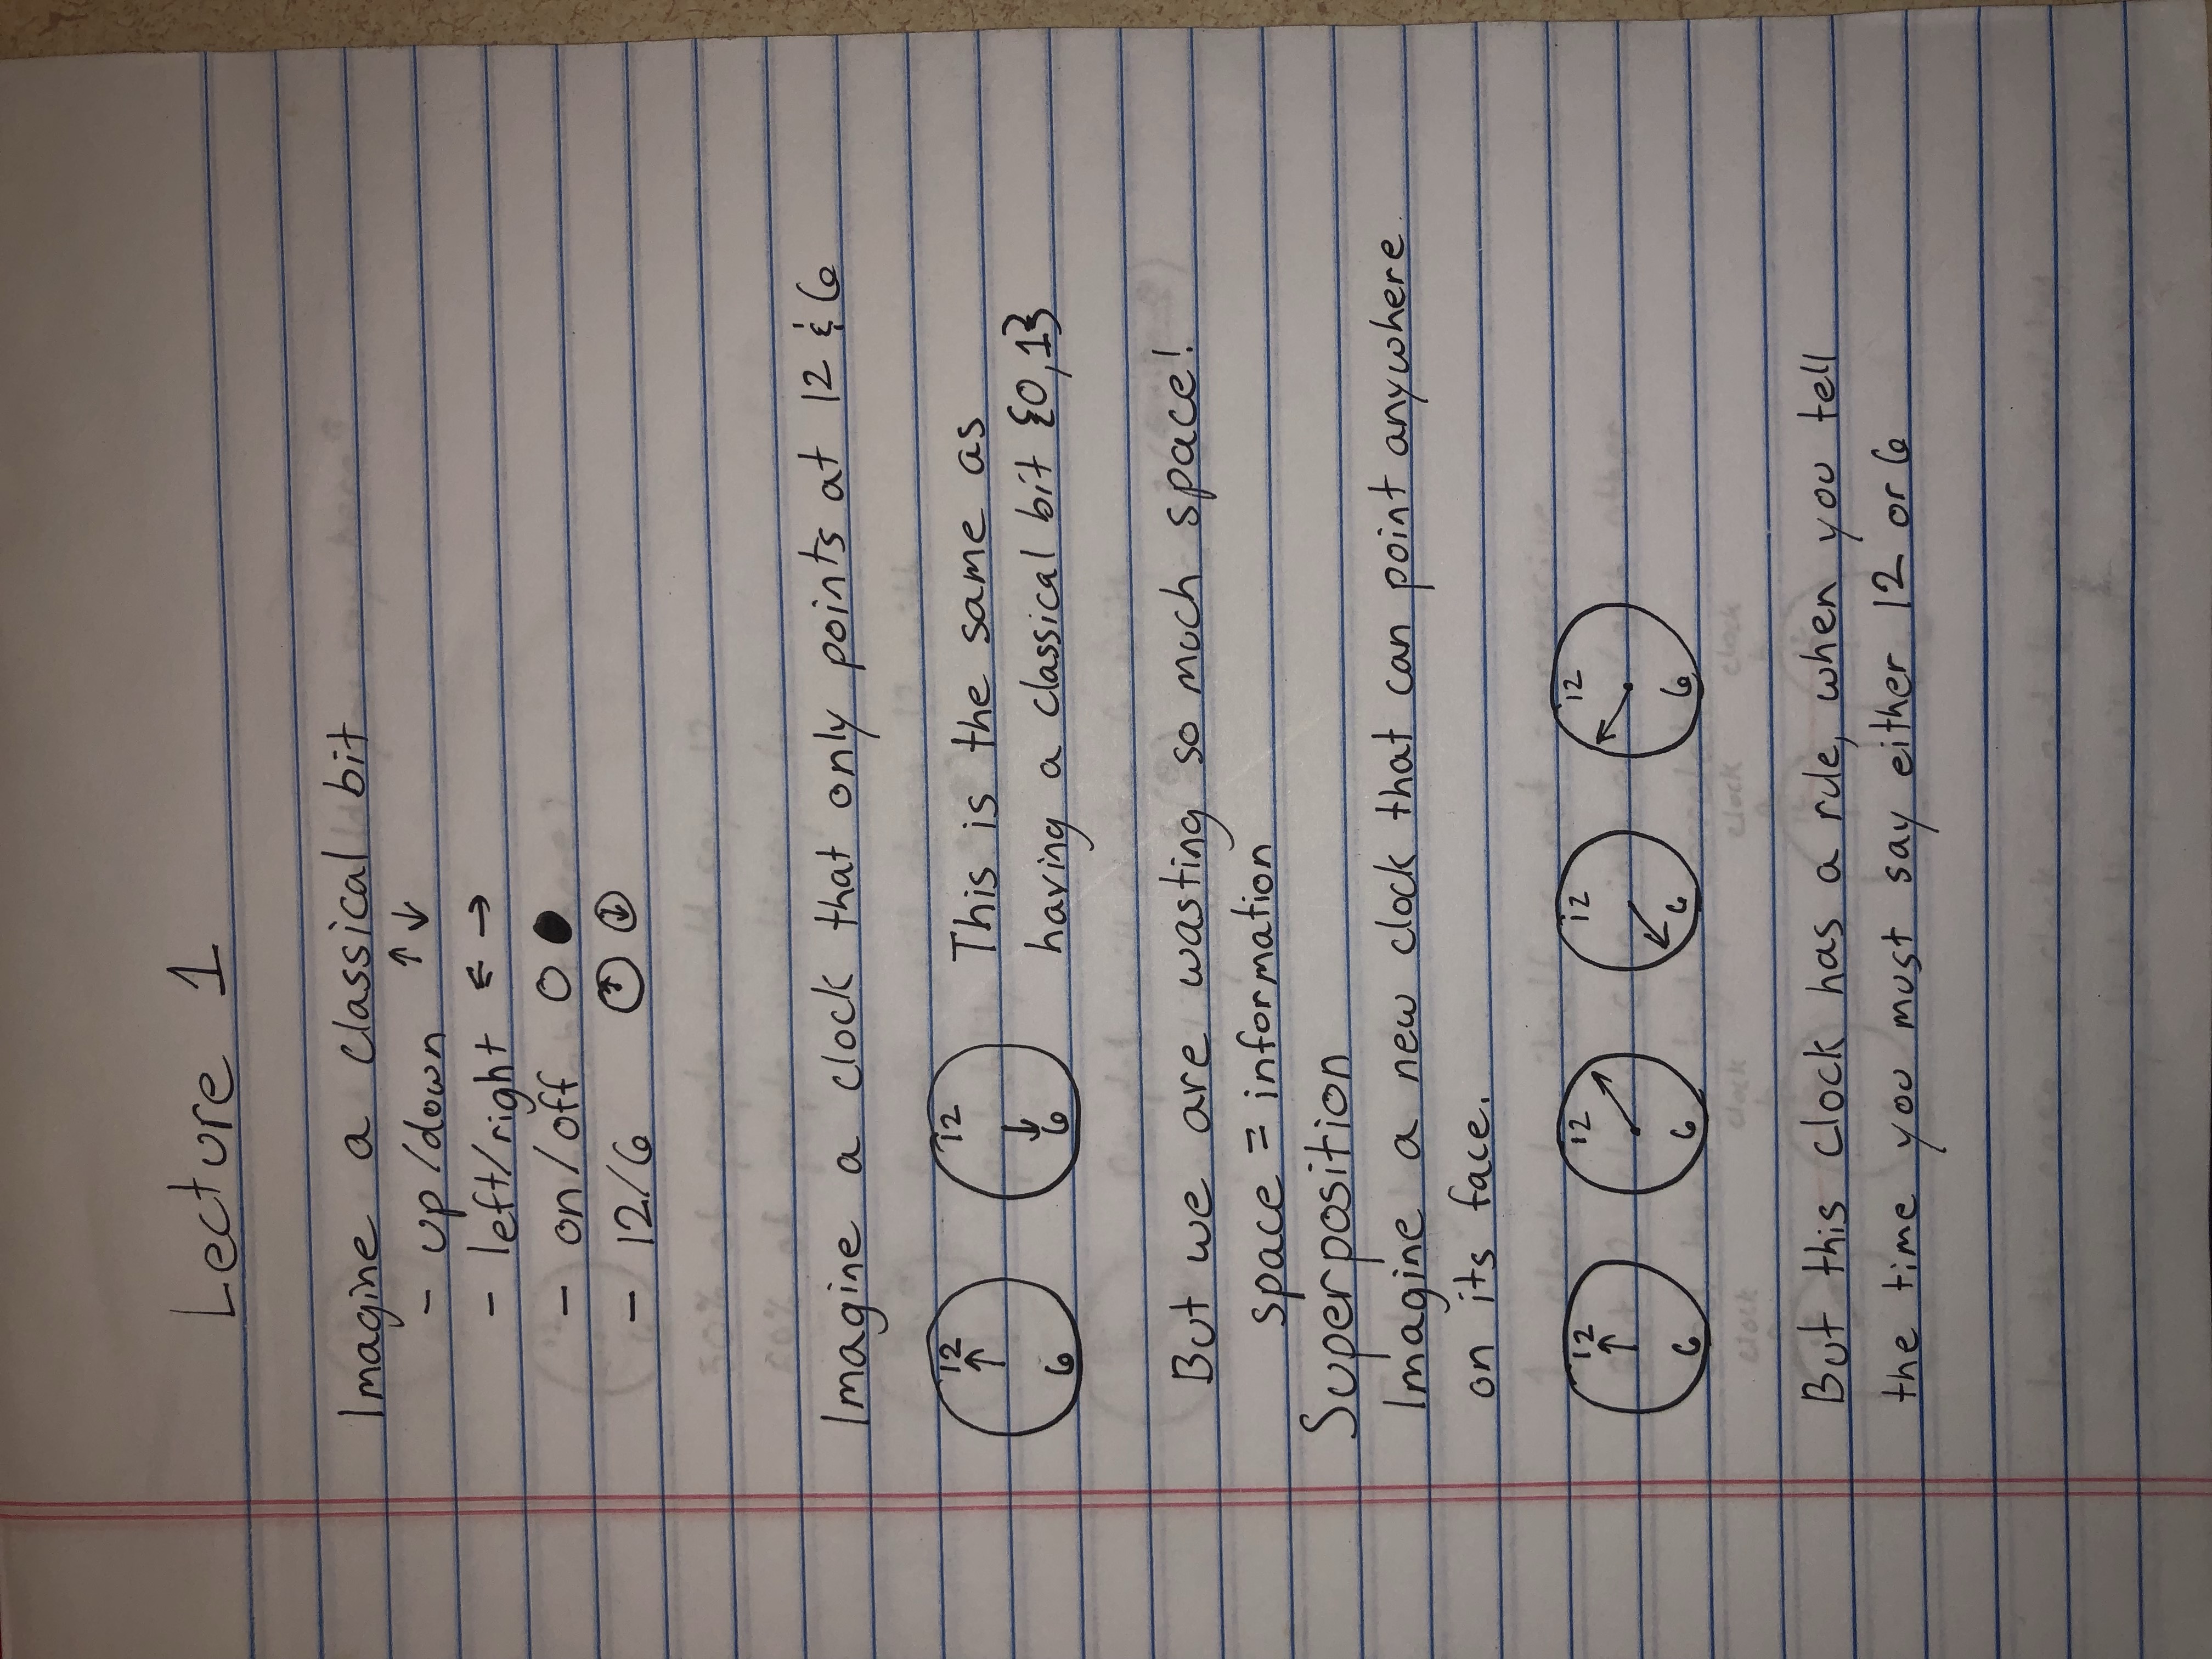 Lecture 1
Imagine a classical bit
- up/down ↑ ↓
- left/right ← →
- on/off
- 12/6 ↑ ↓
Imagine a clock that only points at 12 & 6
12 ↑ 6
12 ↓ 6
This is the same as
having a classical bit {0,1}
But we are wasting so much space!
space = information
Superposition
Imagine a new clock that can point anywhere
on its face.
12 6
12 6
12 6
12 6
But this clock has a rule, when you tell
the time you must say either 12 or 6
clock clock clock clock